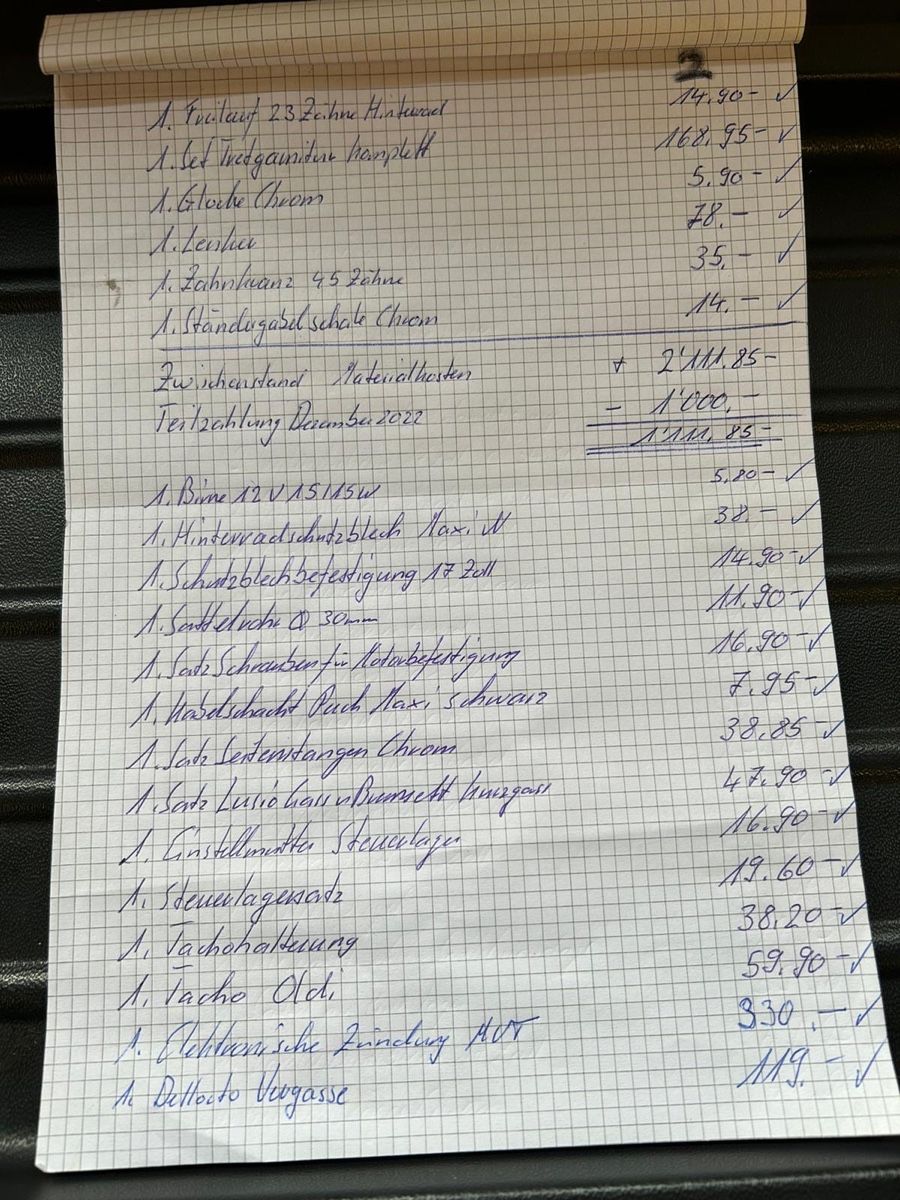 2
1. Freilauf 23 Zähne Hinterrad 14.90- ✓
1. Set Tretgarnitur komplett 168.95- ✓
1. Glocke Chrom 5.90- ✓
1. Lenker 78.- ✓
1. Zahnkranz 45 Zähne 35.- ✓
1. Ständergabelschale Chrom 14.- ✓
Zwischenstand Materialkosten + 2'111.85-
Teilzahlung Dezember 2022 - 1'000.-
1'111.85-
1. Birne 12V 15/15W 5.80- ✓
1. Hinterradschutzblech Maxi N 38.- ✓
1. Schutzblechbefestigung 17 Zoll 14.90- ✓
1. Sattelrohr Ø 30mm 11.90- ✓
1. Satz Schrauben für Motorbefestigung 16.90- ✓
1. Kabelschacht Puch Maxi schwarz 7.95- ✓
1. Satz Seitenstangen Chrom 38.85- ✓
1. Satz Lusito Gas u Kurzgass 47.90- ✓
1. Einstellmutter Steuerlager 16.90- ✓
1. Steuerlagersatz 19.60- ✓
1. Tachohalterung 38.20- ✓
1. Tacho Oldi 59.90- ✓
1. Elektronische Zündung HVT 330.- ✓
1. Dellorto Vergasse 119.- ✓